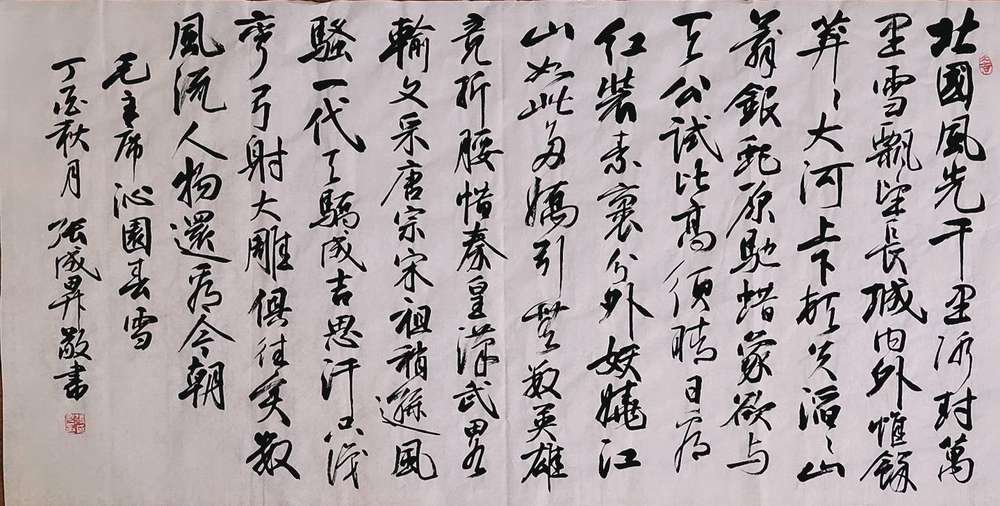 北國風光千里冰封萬
里雪飄望長城内外惟餘
莽〻大河上下頓失滔〻山
舞銀蛇原馳蜡象欲与
天公試比高須晴日看
红裝素裹分外妖嬈江
山如此多嬌引無數英雄
竞折腰惜秦皇漢武畧
輸文采唐宗宋祖稍遜風
騷一代天驕成吉思汗只識
彎弓射大雕俱往矣數
風流人物還看今朝
毛主席沁園春雪
丁酉秋月 張成昇敬書